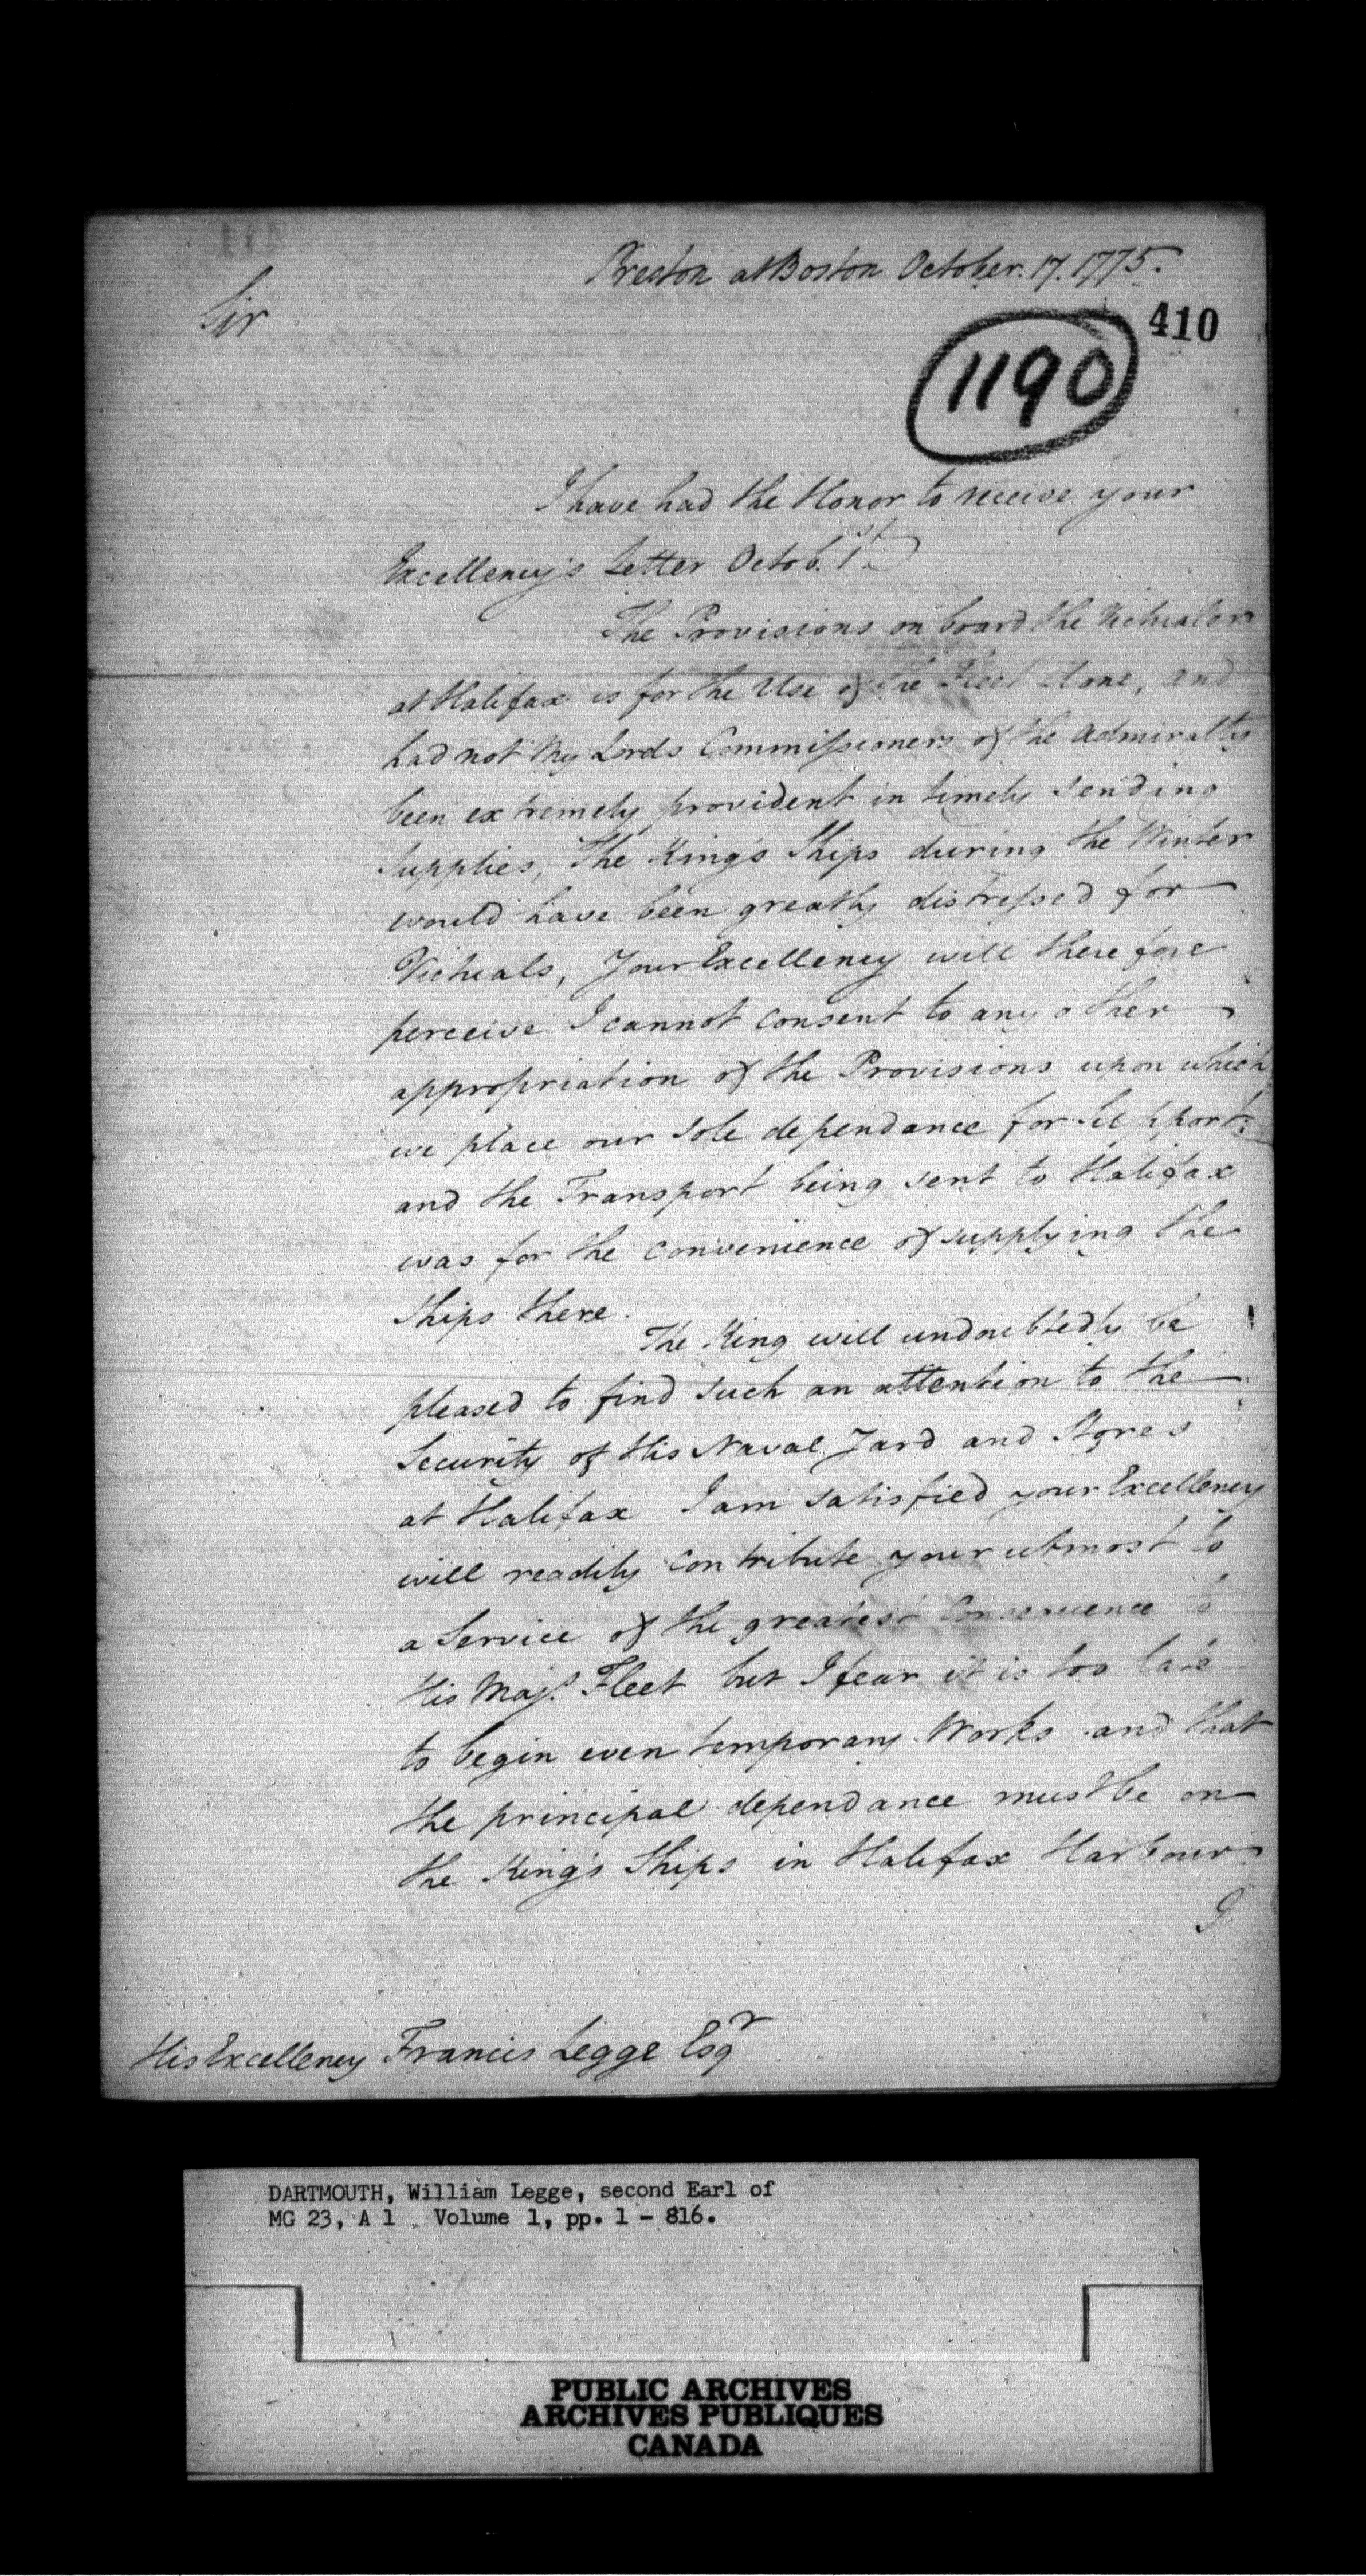 Preston at Boston October. 17. 1775.
Sir
410
1190
I have had the Honor to receive your
Excellency's Letter Octob. 1st
The Provisions on board the Victualer
at Halifax is for the Use of the Fleet alone, and
had not my Lords Commissioners of the Admiralty
been extremely provident in timely sending
Supplies, The King's Ships during the Winter
would have been greatly distressed for
Victuals, Your Excellency will therefore
perceive I cannot consent to any other
appropriation of the Provisions upon which
we place our sole dependance for support:
and the Transport being sent to Halifax
was for the convenience of supplying the
Ships there.
The King will undoubtedly be
pleased to find such an attention to the
Security of His Naval Yard and Stores
at Halifax I am satisfied your Excellency
will readily contribute your utmost to
a Service of the greatest Consequence to
His Majs. Fleet but I fear it is too late
to begin even temporary Works and that
the principal dependance must be on
the King's Ships in Halifax Harbour.
I
His Excellency Francis Legge Esqr
DARTMOUTH, William Legge, second Earl of
MG 23, A 1 Volume 1, pp. 1 - 816.
PUBLIC ARCHIVES
ARCHIVES PUBLIQUES
CANADA